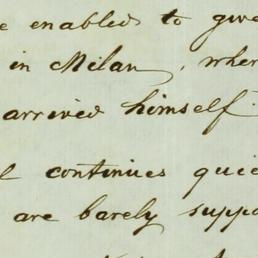 e enabled to give
in Milan, wher
arrived himself.
l continues quie
are barely suppo